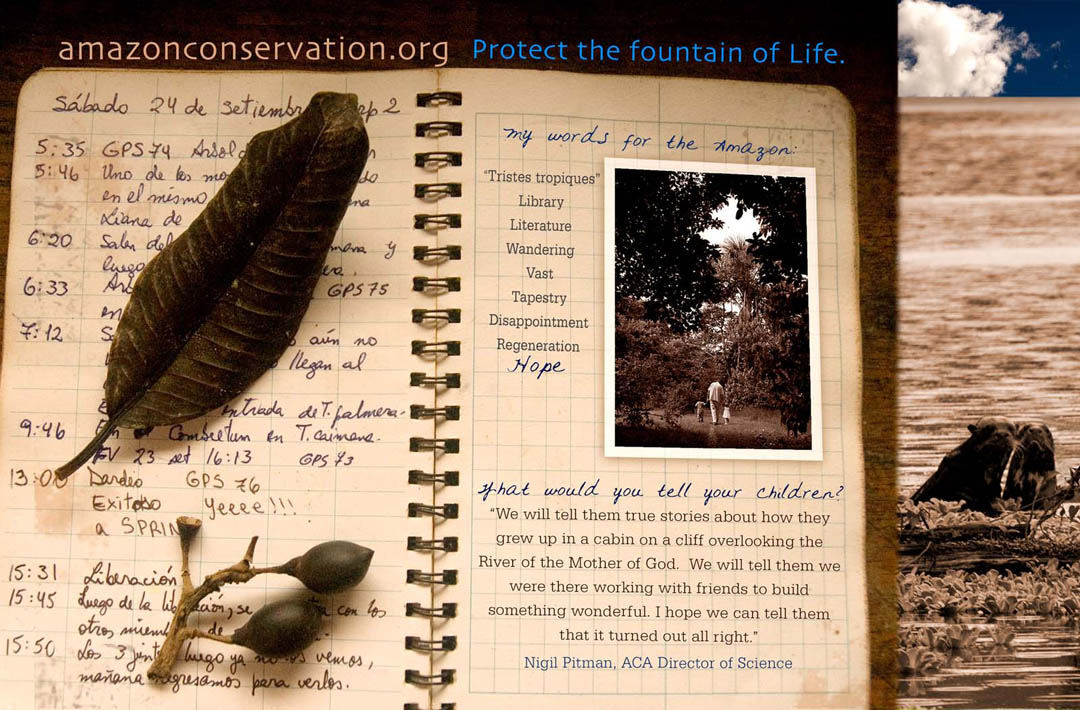 amazonconservation.org Protect the fountain of Life.
Sábado 24 de setiembre
5:35 GPS 74
5:46 Uno de los
en el mismo
Liana de
6:20 Salen del y
luego
6:33 GPS 75
en
7:12 aún no
llegan al
entrada de T. palmera.
9:46 Combretum en T. caimana.
23 set 16:13 GPS 73
13:00 Dardeo GPS 76
Exitoso Yeeee!!!
a SPRIN
15:31 Liberación
15:45 Luego de la se con los
otros de
15:50 Los 3 luego ya vemos,
mañana para verlos.
My words for the Amazon:
“Tristes tropiques”
Library
Literature
Wandering
Vast
Tapestry
Disappointment
Regeneration
Hope
What would you tell your children?
“We will tell them true stories about how they
grew up in a cabin on a cliff overlooking the
River of the Mother of God. We will tell them we
were there working with friends to build
something wonderful. I hope we can tell them
that it turned out all right.”
Nigil Pitman, ACA Director of Science